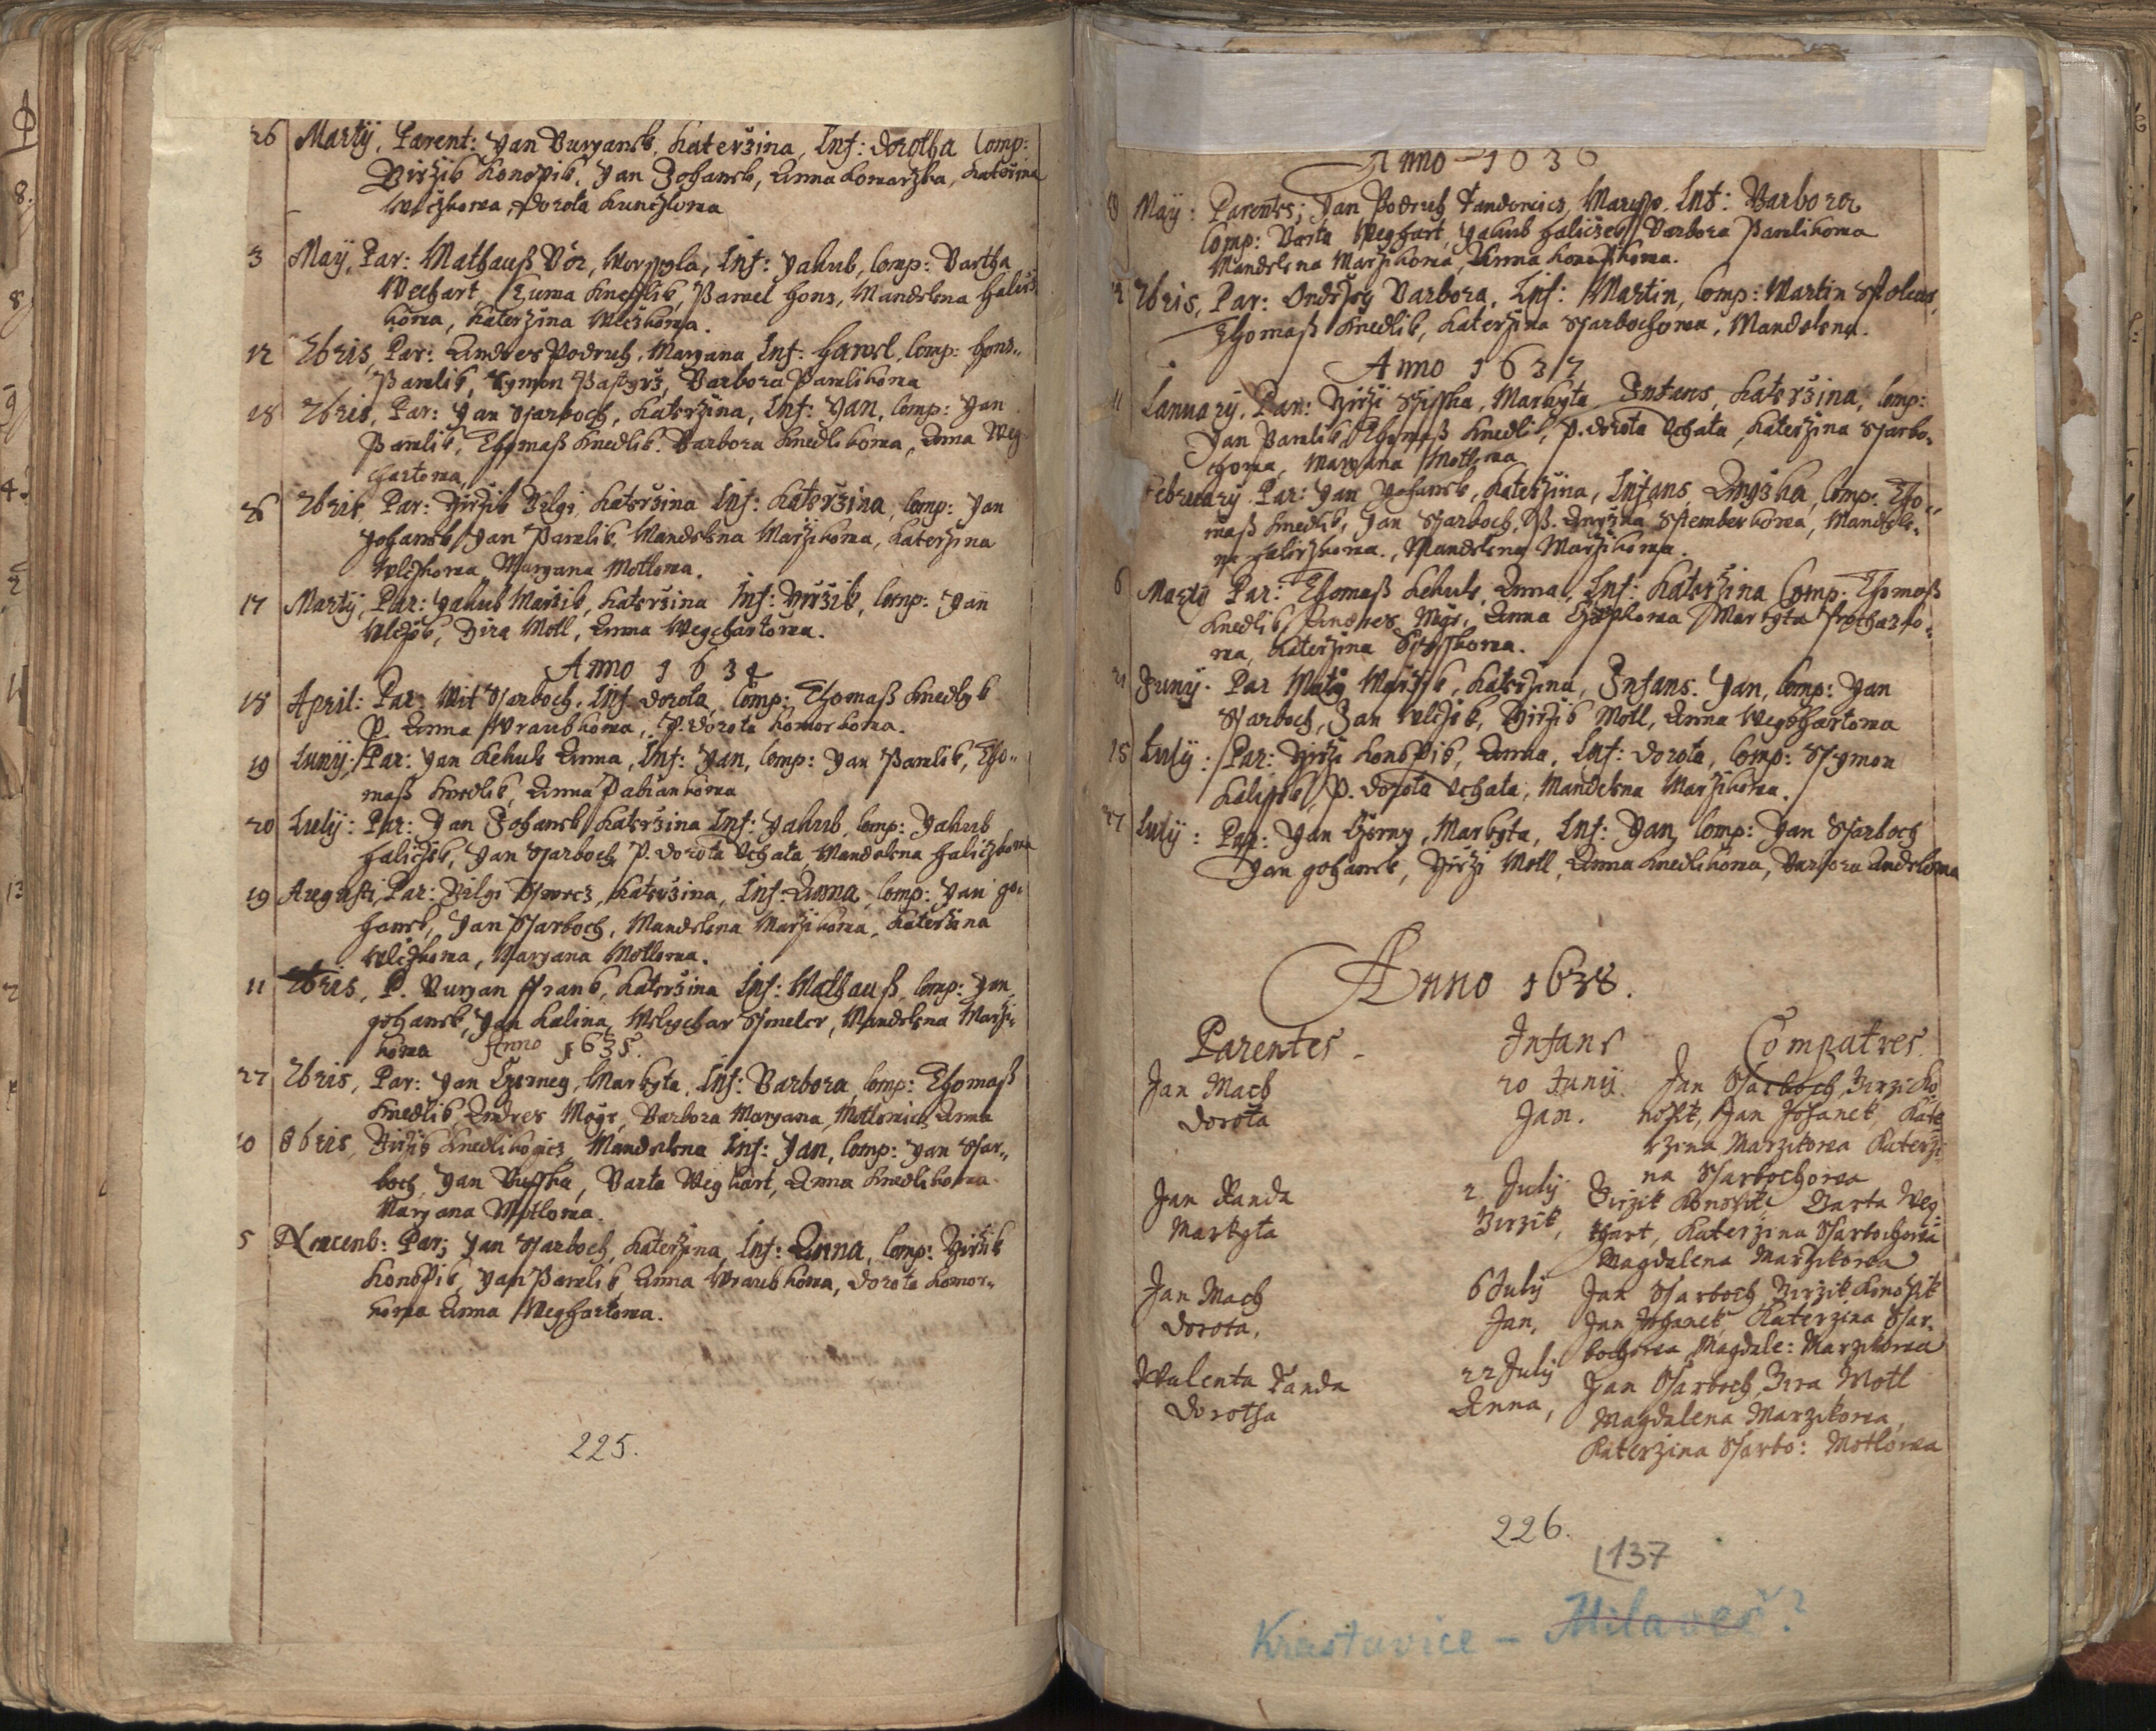 26 Martij, Parent: Yan Buryanek, Katerzina, Inf: Dorotha Comp:
Birzik Konopik, Yan Johanek, Anna Komarzka, Katerina
Wlczkowa, Dorota
3 May, Par: Mathauß Inf: Yakub, Comp: Bartha
Wechart, Kuema Knedlik, Pawel Hons, Mandelena Halicz
kowa, Katerzina Wlczkowa.
12 Xbris, Par: Andres Podruh, Maryana, Inf: Hawel, Comp: Hons
Pawlik, Symon Pastyrz, Barbora Pawlikowa
18 Xbris, Par: Yan Skarboch, Katerzina, Inf: Yan, Comp: Yan
Pawlik, Thomaß Knedlik. Barbora Knedlikowa, Anna Weg
hartowa,
26 Xbris, Par: Yirzik Bilgi, Katerzina Inf: Katerzina, Comp: Yan
Johanek, Yan Pawlik, Mandelena Marzikowa, Katerzina
Wlczkowa, Maryana Motlowa.
17 Martij, Par: Yakub Marzik, Katerzina Inf: Yirzik, Comp: Yan
Wlczek, Yira Motl, Anna Wegchartowa.
Anno 1634
18 April: Par: Wit Skarboch, Inf Dorota, Comp: Thomaß Knedlyk
P. Anna Wraubkowa, P. Dorota Komorkowa.
19 Iunij: Par: Yan Kekule Anna, Inf: Yan, Comp: Yan Pawlik, Tho„
maß Knedlik, Anna Pabiankowa
20 Iulij: Par: Yan Johanek, Katerzina Inf: Yakub, Comp: Yakub
Haliczek, Yan Skarboch, P. Dorota Uchata, Mandelena Haliczkowa
19 Augusti, Par: Bilgi Katerzina, Inf: Anna, Comp: Yan Jo„
hanek, Yan Skarboch, Mandelena Marzikowa, Katerzina
Wlczkowa, Maryana Motlowa.
11 Xbris, P. Buryan Frank, Katerzina Inf: Mathauß, Comp: Yan
Johanek, Yan Kalina, Melychar Mandelena Marzi„
kowa Anno 1635.
27 Xbris, Par: Yan Czerney, Markyta, Inf: Barbora, Comp: Thomaß
Knedlik, Andres Barbora Maryana, Motlowic, Anna
10 8bris, Jirzik Mandelena Inf: Yan, Comp: Yan Skar„
boch, Yan Barta Weghart, Anna Knedlikowa
Maryana Motlowa.
5 Nouenb: Par; Yan Skarboch, Katerzina, Inf: Anna, Comp: Yirzik
Konopik, Yan Pawlik Anna Wraubkowa, Dorota Komor„
kowa Anna Weghartowa.
225.
Anno 1636
May: Parentes; Yan Podruh Maryna. Inf: Barbora
Comp: Barta Weghart, Yakub Haliczek, Barbora Pawlikowa
Mandelena Marzikowa, Anna
Xbris, Par: Ondrzey Barbora, Inf: Martin, Comp: Martin
Thomaß Knedlik, Katerzina Skarbochowa, Mandelena.
Anno 1637
11 Ianuarij, Par: Yirzi Markyta Infans, Katerzina, Comp:
Yan Pawlik, Thomaß Knedlik, P. Dorota Uchata, Katerzina Skarbo„
chowa, Maryana Motlowa
February Par: Yan Johanek, Katerzina, Infans Comp: Tho„
maß Knedlik, Yan Skarboch, P. Mandele„
na Haliczkowa, Mandelena Marzikowa.
6 Martij Par: Thomaß Kekule, Anna, Inf: Katerzina Comp: Thomaß
Knedlik, Andres Anna Markyta
wa, Katerzina
Junij. Par Katerzina, Infans. Yan, Comp: Yan
Skarboch, Jan Wlczek, Yirzik Motl, Anna Weghartowa
15 Iulij: Par: Yirzi Konopik, Anna, Inf: Dorota, Comp: Symon
P. Dorota Uchata, Mandelena Marzikowa.
27 Iulij: Par: Yan Czerny, Markyta, Inf: Yan, Comp: Yan Skarboch
Yan Johanek, Yirzi Motl, Anna Knedlikowa, Barbora
Anno 1638.
Parentes Infans Compatres.
Jan Mach 20 Junij. Jan Skarboch, Jirzi Ko
Dorota Jan. nopik, Jan Johanek, Kate
rzina Marzikowa Katerzi
na Skarbochowa
Jan Randa 2 Julij Jirzik Konopik, Barta Weg
Markyta Jirzik, hart, Katerzina Skarbochowa
Magdalena Marzikowa
Jan Mach 6 Julij Jan Skarboch Jirzik Konopik
Dorota, Jan, Jan Johanek, Katerzina Skar.
bochowa, Magdale: Marzikowa
Walenta Panda 22 Julij Jan Skarboch, Jira Motl
Dorotha Anna, Magdalena Marzikowa,
Katerzina Skarbo: Motlowa
226.
137
Krastavice - Milaveč?